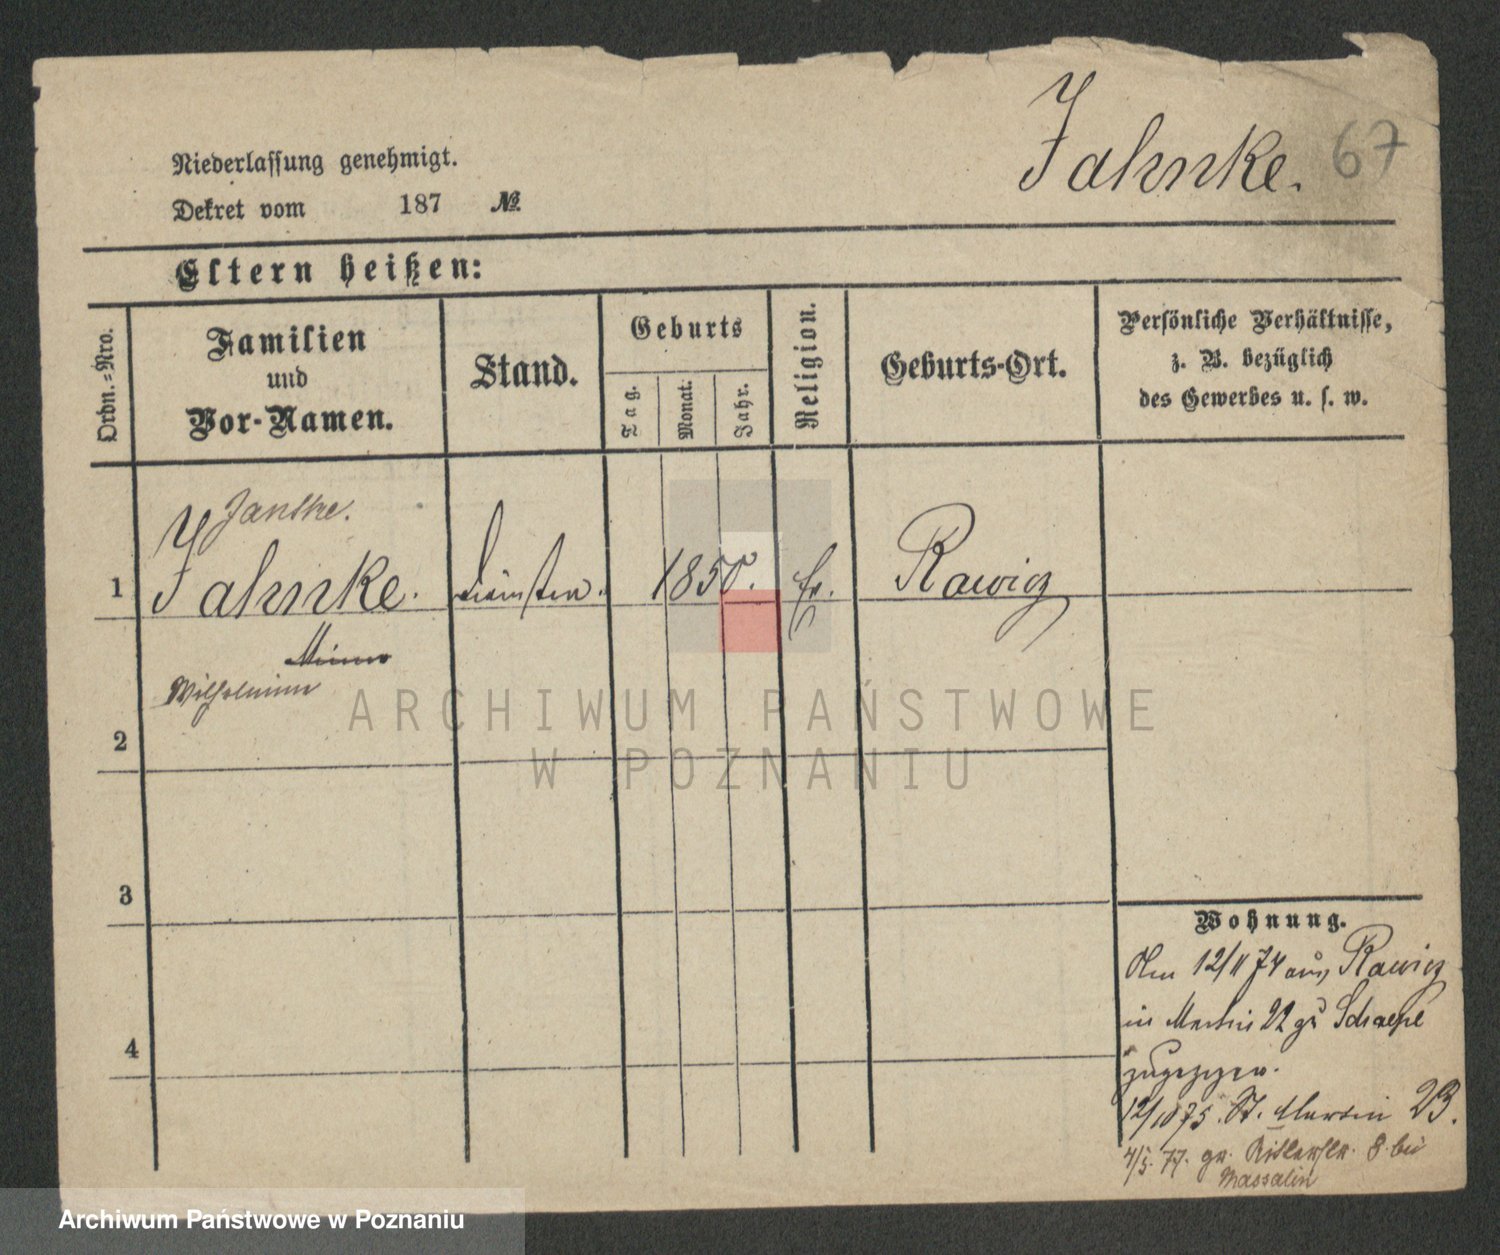 Jahnke. 67
Niederlassung genehmigt.
Dekret vom 187 №
Eltern heißen:
Ordn.=Nro.
Familien
und
Vor-Namen.
Stand.
Geburts
Tag.
Monat.
Jahr.
Religion.
Geburts-Ort.
Persönliche Verhältnisse,
z. B. bezüglich
des Gewerbes u. s. w.
1
Jahnke.
1850.
Rawicz
Wilhelmine
2
3
4
Wohnung.
Am 12/11 74 aus Rawicz
in Martin 22 zu
zugezogen.
12/10 75. St. Martin 23.
4/5. 77. gr. Ritterstr. 8 bei
Massalin
ARCHIWUM PAŃSTWOWE
W POZNANIU
Archiwum Państwowe w Poznaniu